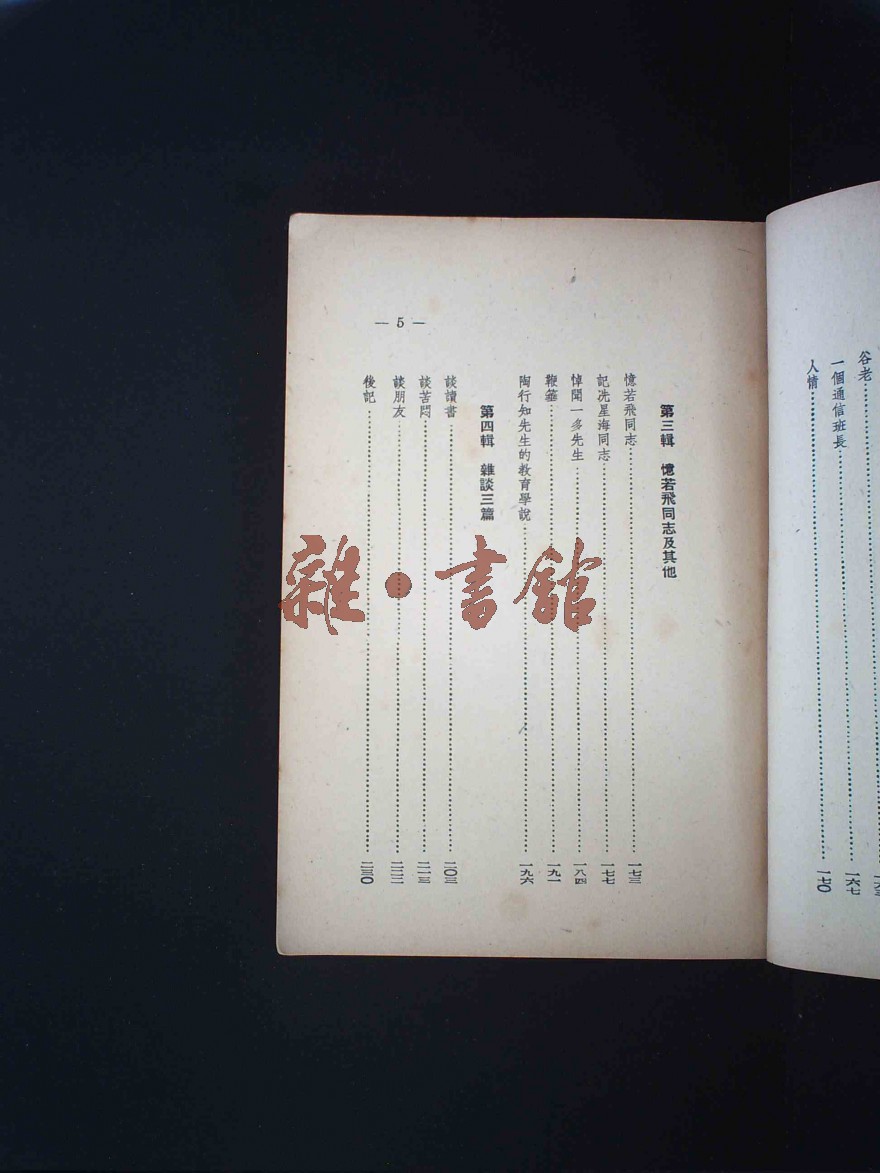 谷老
一個通信班長 一六七
人情 一七〇
第三輯 憶若飛同志及其他
憶若飛同志 一七三
記冼星海同志 一七七
悼聞一多先生 一八四
鞭箠 一九一
陶行知先生的教育學說 一九六
第四輯 雜談三篇
談讀書 二〇三
談苦悶 二一三
談朋友 二二二
後記 二三〇
— 5 —
雜·書館